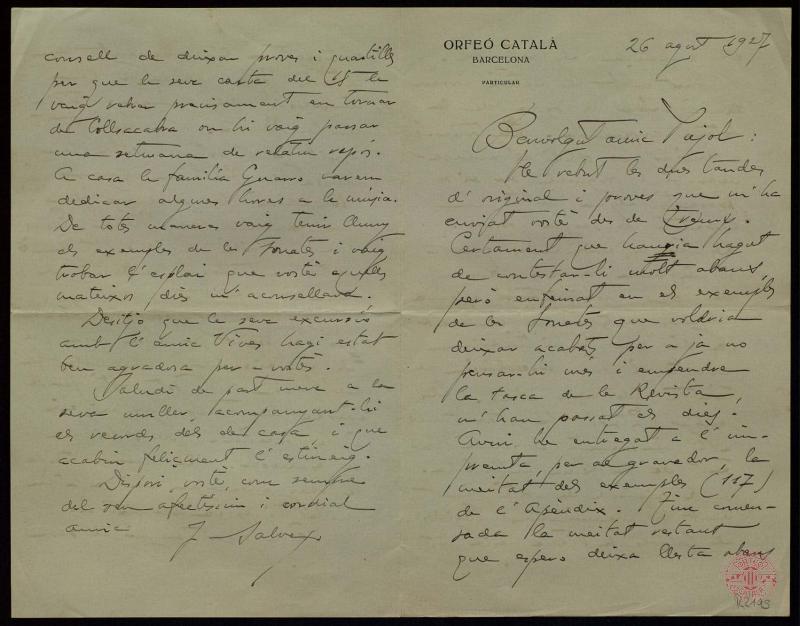 ORFEÓ CATALÀ
BARCELONA
PARTICULAR
26 agost 1927
Benvolgut amic Pujol:
He rebut les dues tandes
d'original i proves que m'ha
enviat vostè des de
Certament que hauria hagut
de contestar-li molt abans,
però enfeinat en els exemples
de les Sonates que voldria
deixar acabats per a ja no
pensar-hi més i empendre
la tasca de la Revista,
m'han passat els dies.
Avui he entregat a l'im-
premta, per al gravador, la
meitat dels exemples (117)
de l'Apèndix. Tinc comen-
sada la meitat restant
que espero deixa llesta abans
consell de deixar proves i quartilles
per que la seva carta del la
vaig rebre precisament en tornar
de Collsacabra on hi vaig passar
una setmana de relatiu repòs.
A casa la família Guarro varem
dedicar algunes hores a la música.
De totes maneres vaig tenir lluny
els exemples de les Sonates i vaig
trobar l'esplai que vostè aquells
mateixos dies m'aconsellava.
Desitjo que la seva excursió
amb l'amic Vives hagi estat
ben agradosa per a vostès.
Saludi de part meva a la
seva muller, acompanyant-hi
els records dels de casa, i que
acabin feliçment l'estiueig.
Disposi, vostè, com sempre
del seu afectíssim i cordial
amic J. Salvat